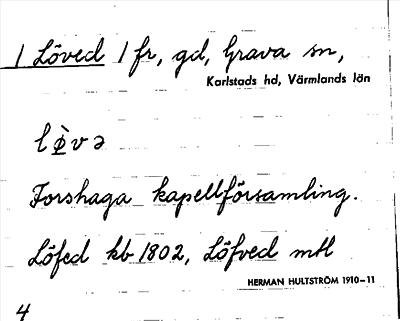 1 Löved 1 fr, gd, Grava sn,
Karlstads hd, Värmlands län
lø̀və
Forshaga kapellförsamling.
Löfed kb 1802, Löfved mtl
HERMAN HULTSTRÖM 1910–11
4